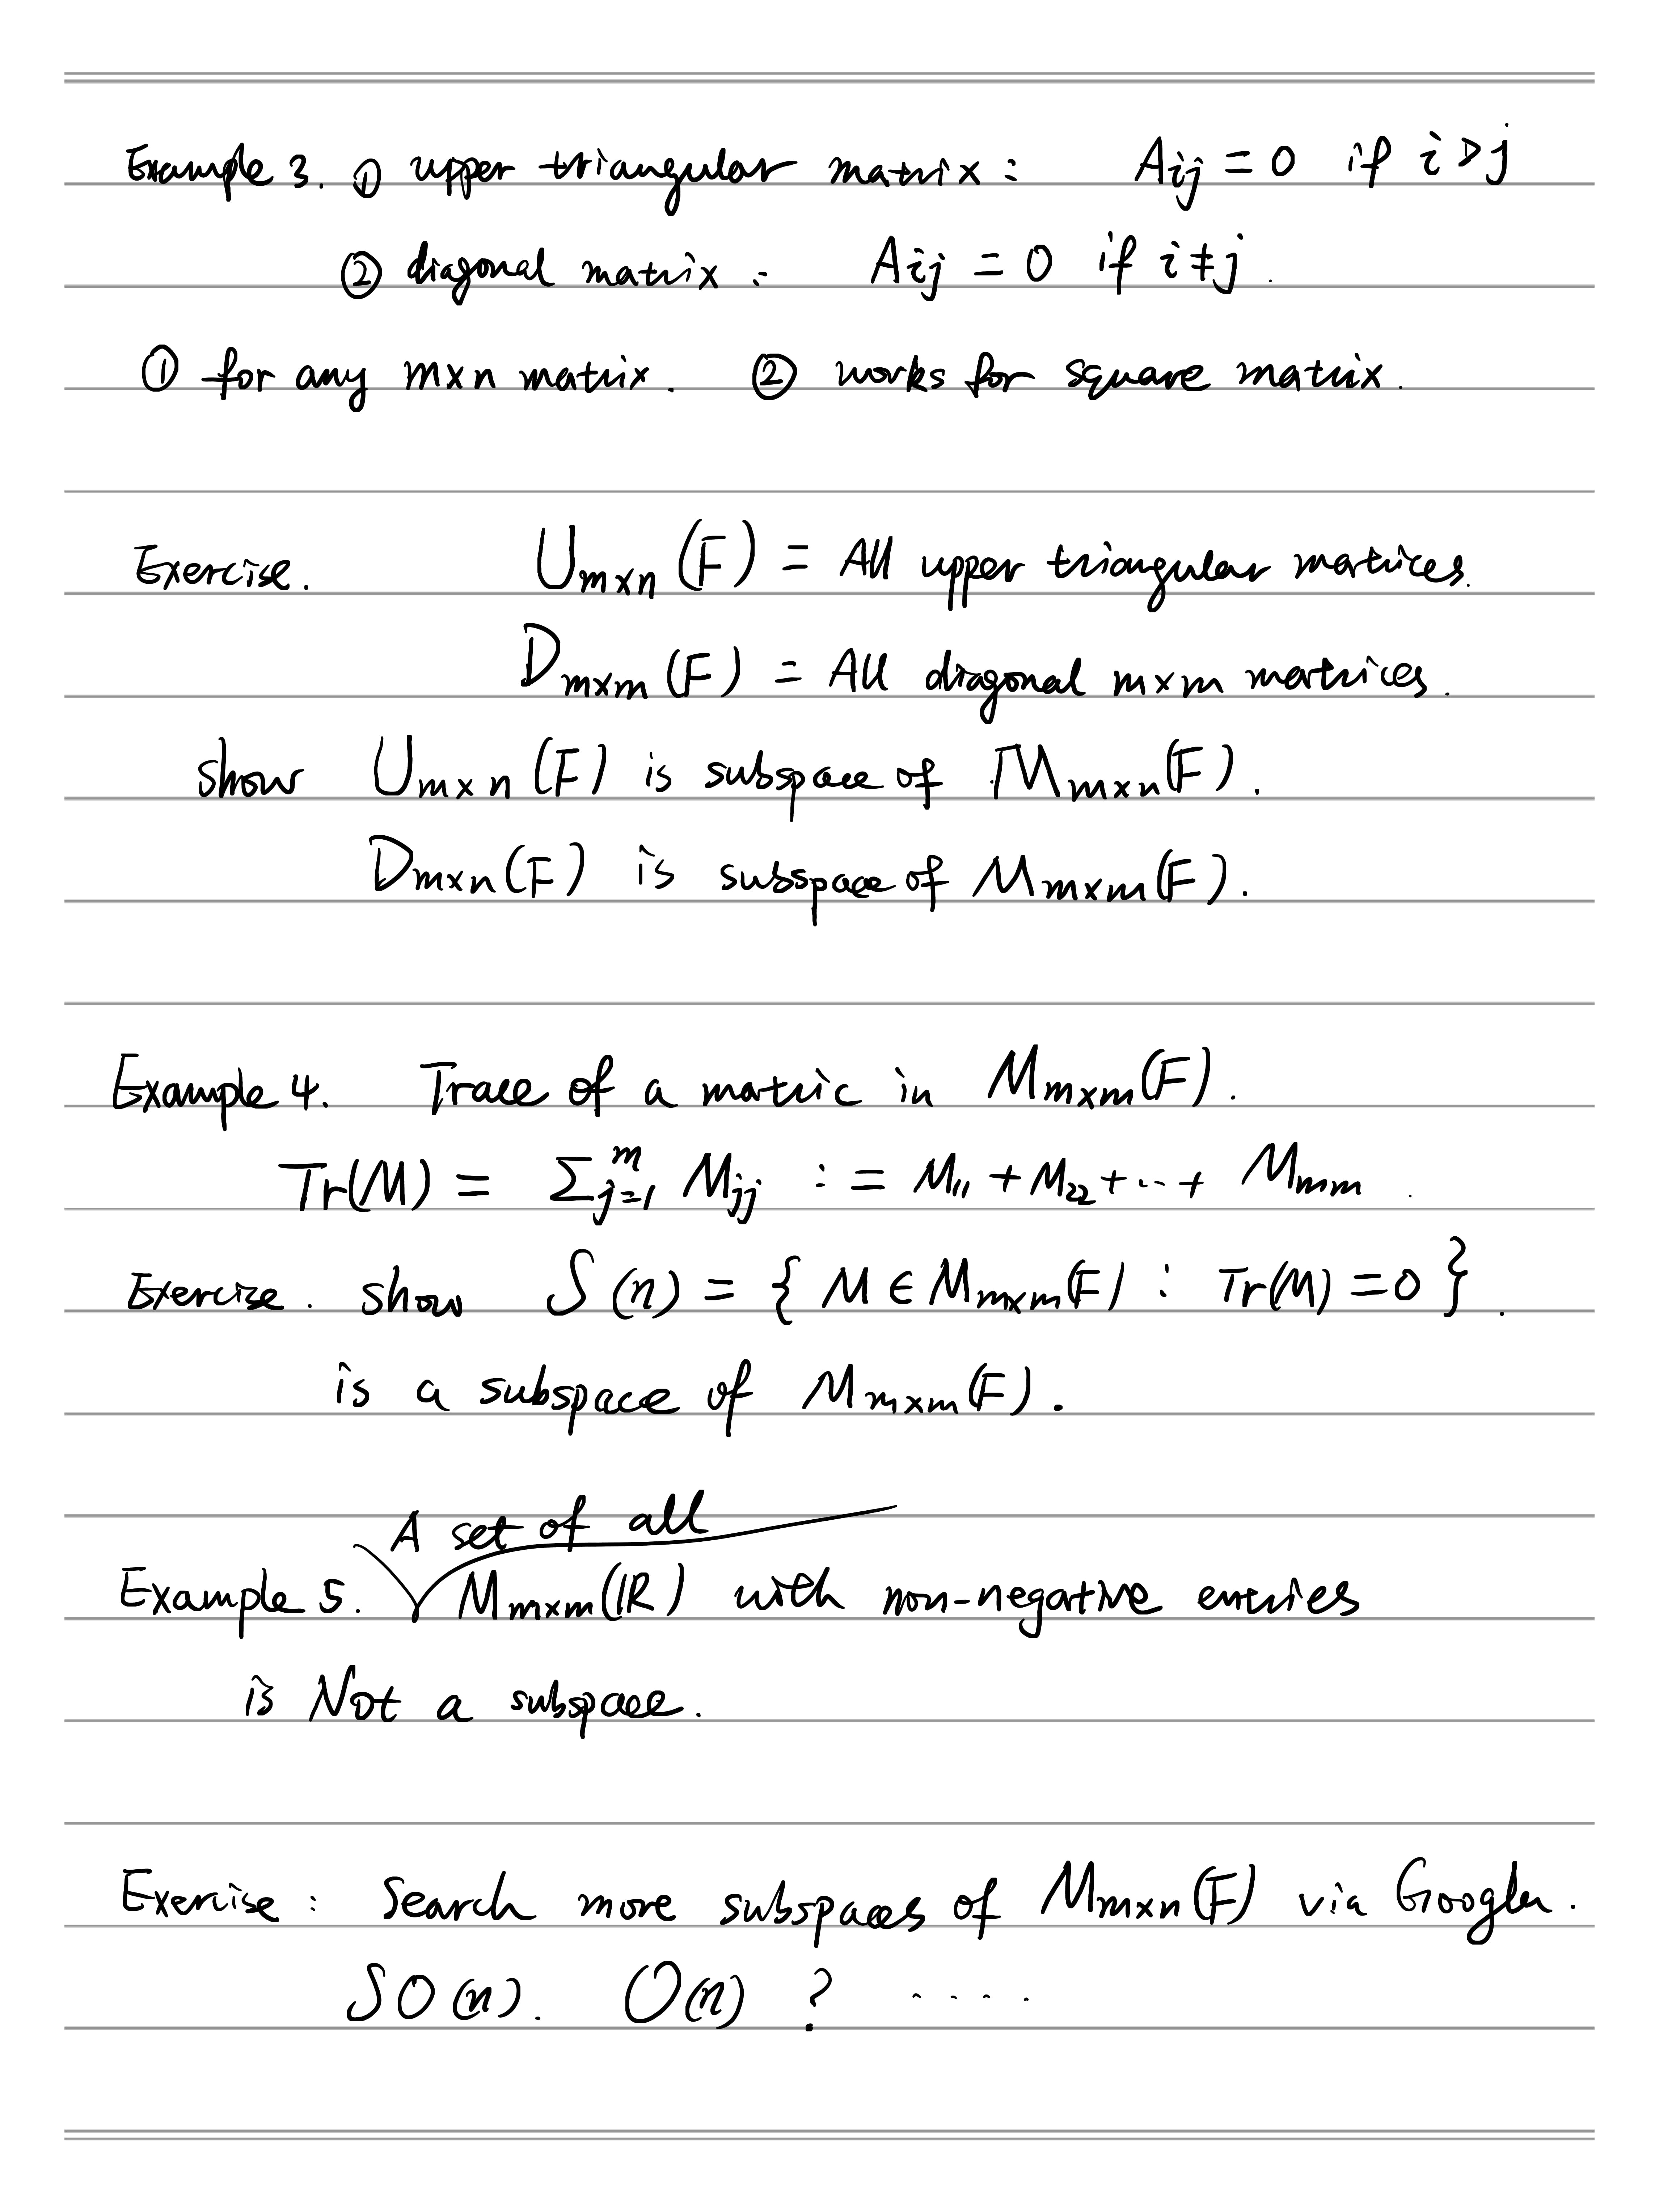 Example 3. ① upper triangular matrix : Aij = 0 if i > j
② diagonal matrix : Aij = 0 if i ≠ j.
① for any m×n matrix. ② works for square matrix.
Exercise. Um×n (F) = All upper triangular matrices.
Dm×m (F) = All diagonal m×m matrices.
show Um×n (F) is subspace of Mm×n(F).
Dm×n(F) is subspace of Mm×m(F).
Example 4. Trace of a matric in Mm×m(F).
Tr(M) = Σ_{j=1}^{m} Mjj := M11 + M22 + ... + Mmm.
Exercise. show S(n) = { M ∈ Mm×m(F) : Tr(M) = 0 }.
is a subspace of Mm×m(F).
A set of all
Example 5. Mm×m(ℝ) with non-negative entries
is Not a subspace.
Exercise : Search more subspaces of Mm×n(F) via Google.
SO(n). O(n) ? ....